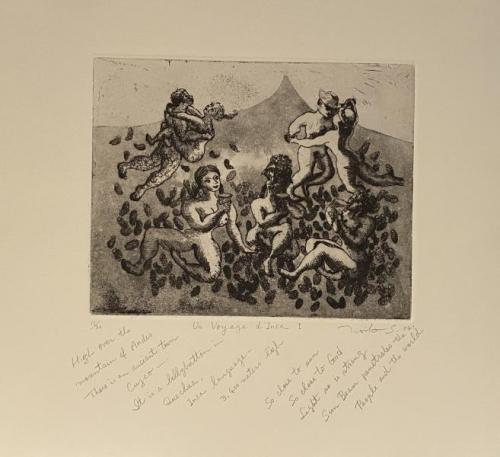 Un Voyage d'Inca I
High over the
mountain of Andes
There is an ancient town
Cuzco —
It is a bellybutton in
Quechua,
Inca language
3,400 meters high
So close to sun
So close to God
Light as a strong
Sun Beam penetrates the
People and the world